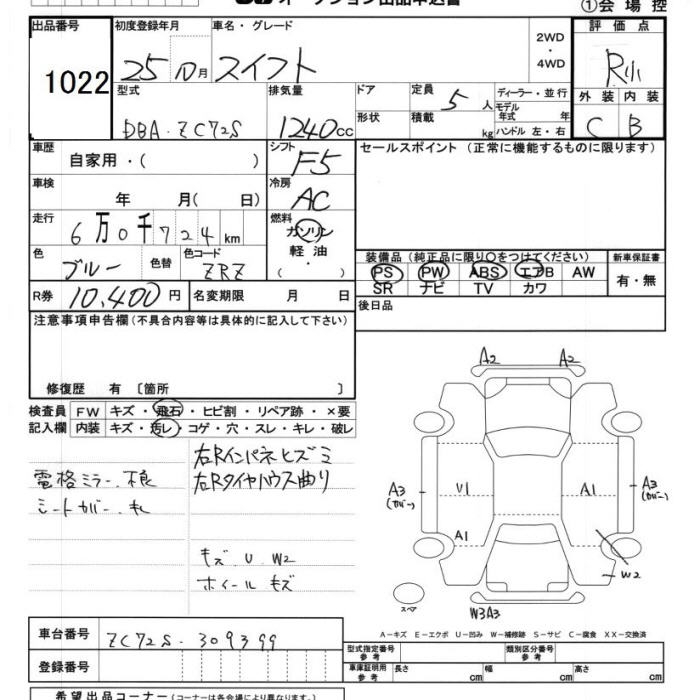 オークション出品申込書
①会場控
出品番号
1022
初度登録年月
25 10 月
車名・グレード
スイフト
2WD
・
4WD
評価点
R小
型式
DBA-ZC72S
排気量
1240cc
ドア
形状
定員
5 人
積載
kg
ディーラー・並行
モデル年式 年
ハンドル 左・右
外装 内装
C B
車歴
自家用・( )
シフト
F5
セールスポイント (正常に機能するものに限ります)
車検
年 月( 日)
冷房
AC
走行
6万0千724km
燃料
ガソリン
軽油
・
( )
色
ブルー
色替
色コード
ZRZ
装備品 (純正品に限り○をつけてください)
PS PW ABS エアB AW
SR ナビ TV カワ
新車保証書
有・無
R券
10,400円
名変期限 月 日
後日品
注意事項申告欄 (不具合内容等は具体的に記入して下さい)
修復歴 有 〔箇所 〕
検査員
記入欄
FW キズ・飛石・ヒビ割・リペア跡・×要
内装 キズ・汚レ・コゲ・穴・スレ・キレ・破レ
電格ミラー不良
シートカバー
右Rインパネヒズミ
右Rタイヤハウス曲り
キズ U W2
ホイールキズ
A2 A2
A3
(カバー)
U1
A1
A3
(カバー)
A1
W2
W3A3
スペア
A-キズ E-エクボ U-凹み W-補修跡 S-サビ C-腐食 XX-交換済
車台番号
ZC72S-309399
登録番号
型式指定番号
参考
類別区分番号
参考
車庫証明用
参考
長さ cm
幅 cm
高さ cm
希望出品コーナー (コーナーは各会場により異なります)